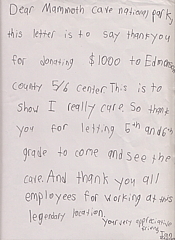 Dear Mammoth cave national park,
this letter is to say thankyou
for donating $1000 to Edmonson
county 5/6 center This is to
show I really care. So thank
you for letting 5th and 6th
grade to come and see the
cave. And thank you all
employees for working at this
legendary location.
your very appreciative